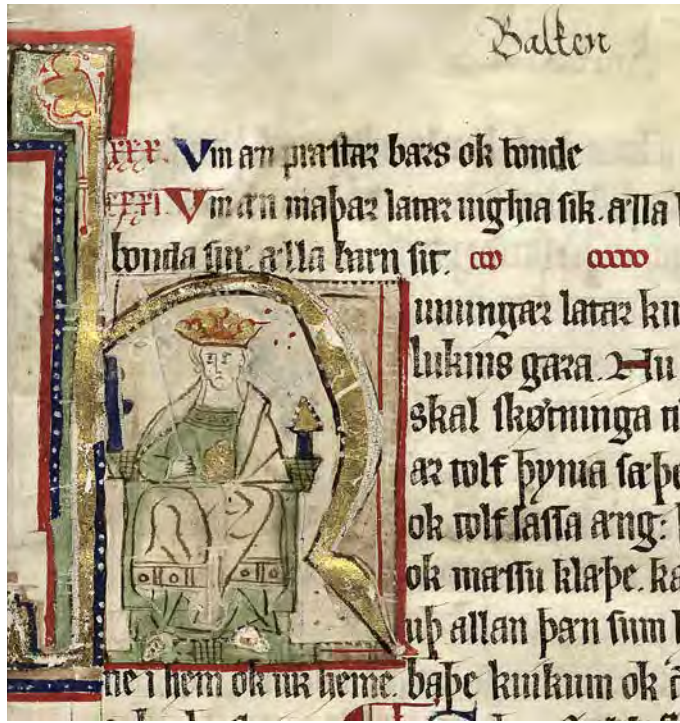 Balken
xxx. Vm an præstær bærs ok bonde
xxxi. Vm æn maþær latær uighia sik. ælla
bonda sin ælla barn sit.
unungær latær ki
lukins gæra. Nu
skal skøtninga
ær tolf þynia sæþe
ok tolf lassa æng:
ok mæssu klæþe. ka
uþ allan þæn sum
ne i hem ok ur heme. baþe kuikum ok